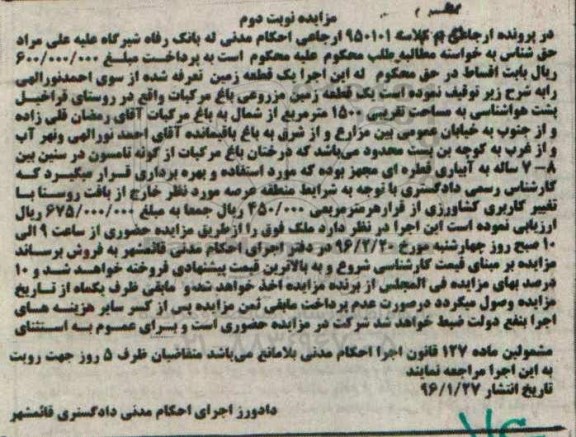 مزایده نوبت دوم
در پرونده ارجاعی به کلاسه 950101 ارجاعی احکام مدنی له بانک رفاه شیرگاه علیه علی مراد
حق شناس به خواسته مطالبه طلب محکوم علیه محکوم است به پرداخت مبلغ 600/000/000
ریال بابت اقساط در حق محکوم له این اجرا یک قطعه زمین تعرفه شده از سوی احمدنورالهی
رابه شرح زیر توقیف نموده است یک قطعه زمین مزروعی باغ مرکبات واقع در روستای قراخیل
پشت هواشناسی به مساحت تقریبی 1500 مترمربع از شمال به باغ مرکبات آقای رمضان قلی زاده
و از جنوب به خیابان عمومی بین مزارع و از شرق به باغ باقیمانده آقای احمد نورالهی ونهر آب
و از غرب به کوچه بن بست محدود می‌باشد که درختان باغ مرکبات از گونه تامسون در سنین بین
7-8 ساله به آبیاری قطره ای مجهز بوده که مورد استفاده و بهره برداری قرار میگیرد که
کارشناس رسمی دادگستری با توجه به شرایط منطقه عرصه مورد نظر خارج از بافت روستا با
تغییر کاربری کشاورزی از قرارهرمترمربعی 450/000 ریال جمعا به مبلغ 675/000/000 ریال
ارزیابی نموده است این اجرا در نظر دارد ملک فوق را ازطریق مزایده حضوری از ساعت 9 الی
10 صبح روز چهارشنبه مورخ 96/2/20 در دفتر اجرای احکام مدنی قائمشهر به فروش برساند
مزایده بر مبنای قیمت کارشناسی شروع و به بالاترین قیمت پیشنهادی فروخته خواهد شد و 10
درصد بهای مزایده فی المجلس از برنده مزایده اخذ خواهد شدو مابقی ظرف یکماه از تاریخ
مزایده وصول میگردد درصورت عدم پرداخت مابقی ثمن مزایده پس از کسر سایر هزینه های
اجرا بنفع دولت ضبط خواهد شد شرکت در مزایده حضوری است و برای عموم به استثنای
مشمولین ماده 127 قانون اجرا احکام مدنی بلامانع می‌باشد متقاضیان ظرف 5 روز جهت رویت
به این اجرا مراجعه نمایند
تاریخ انتشار 96/1/27
دادورز اجرای احکام مدنی دادگستری قائمشهر